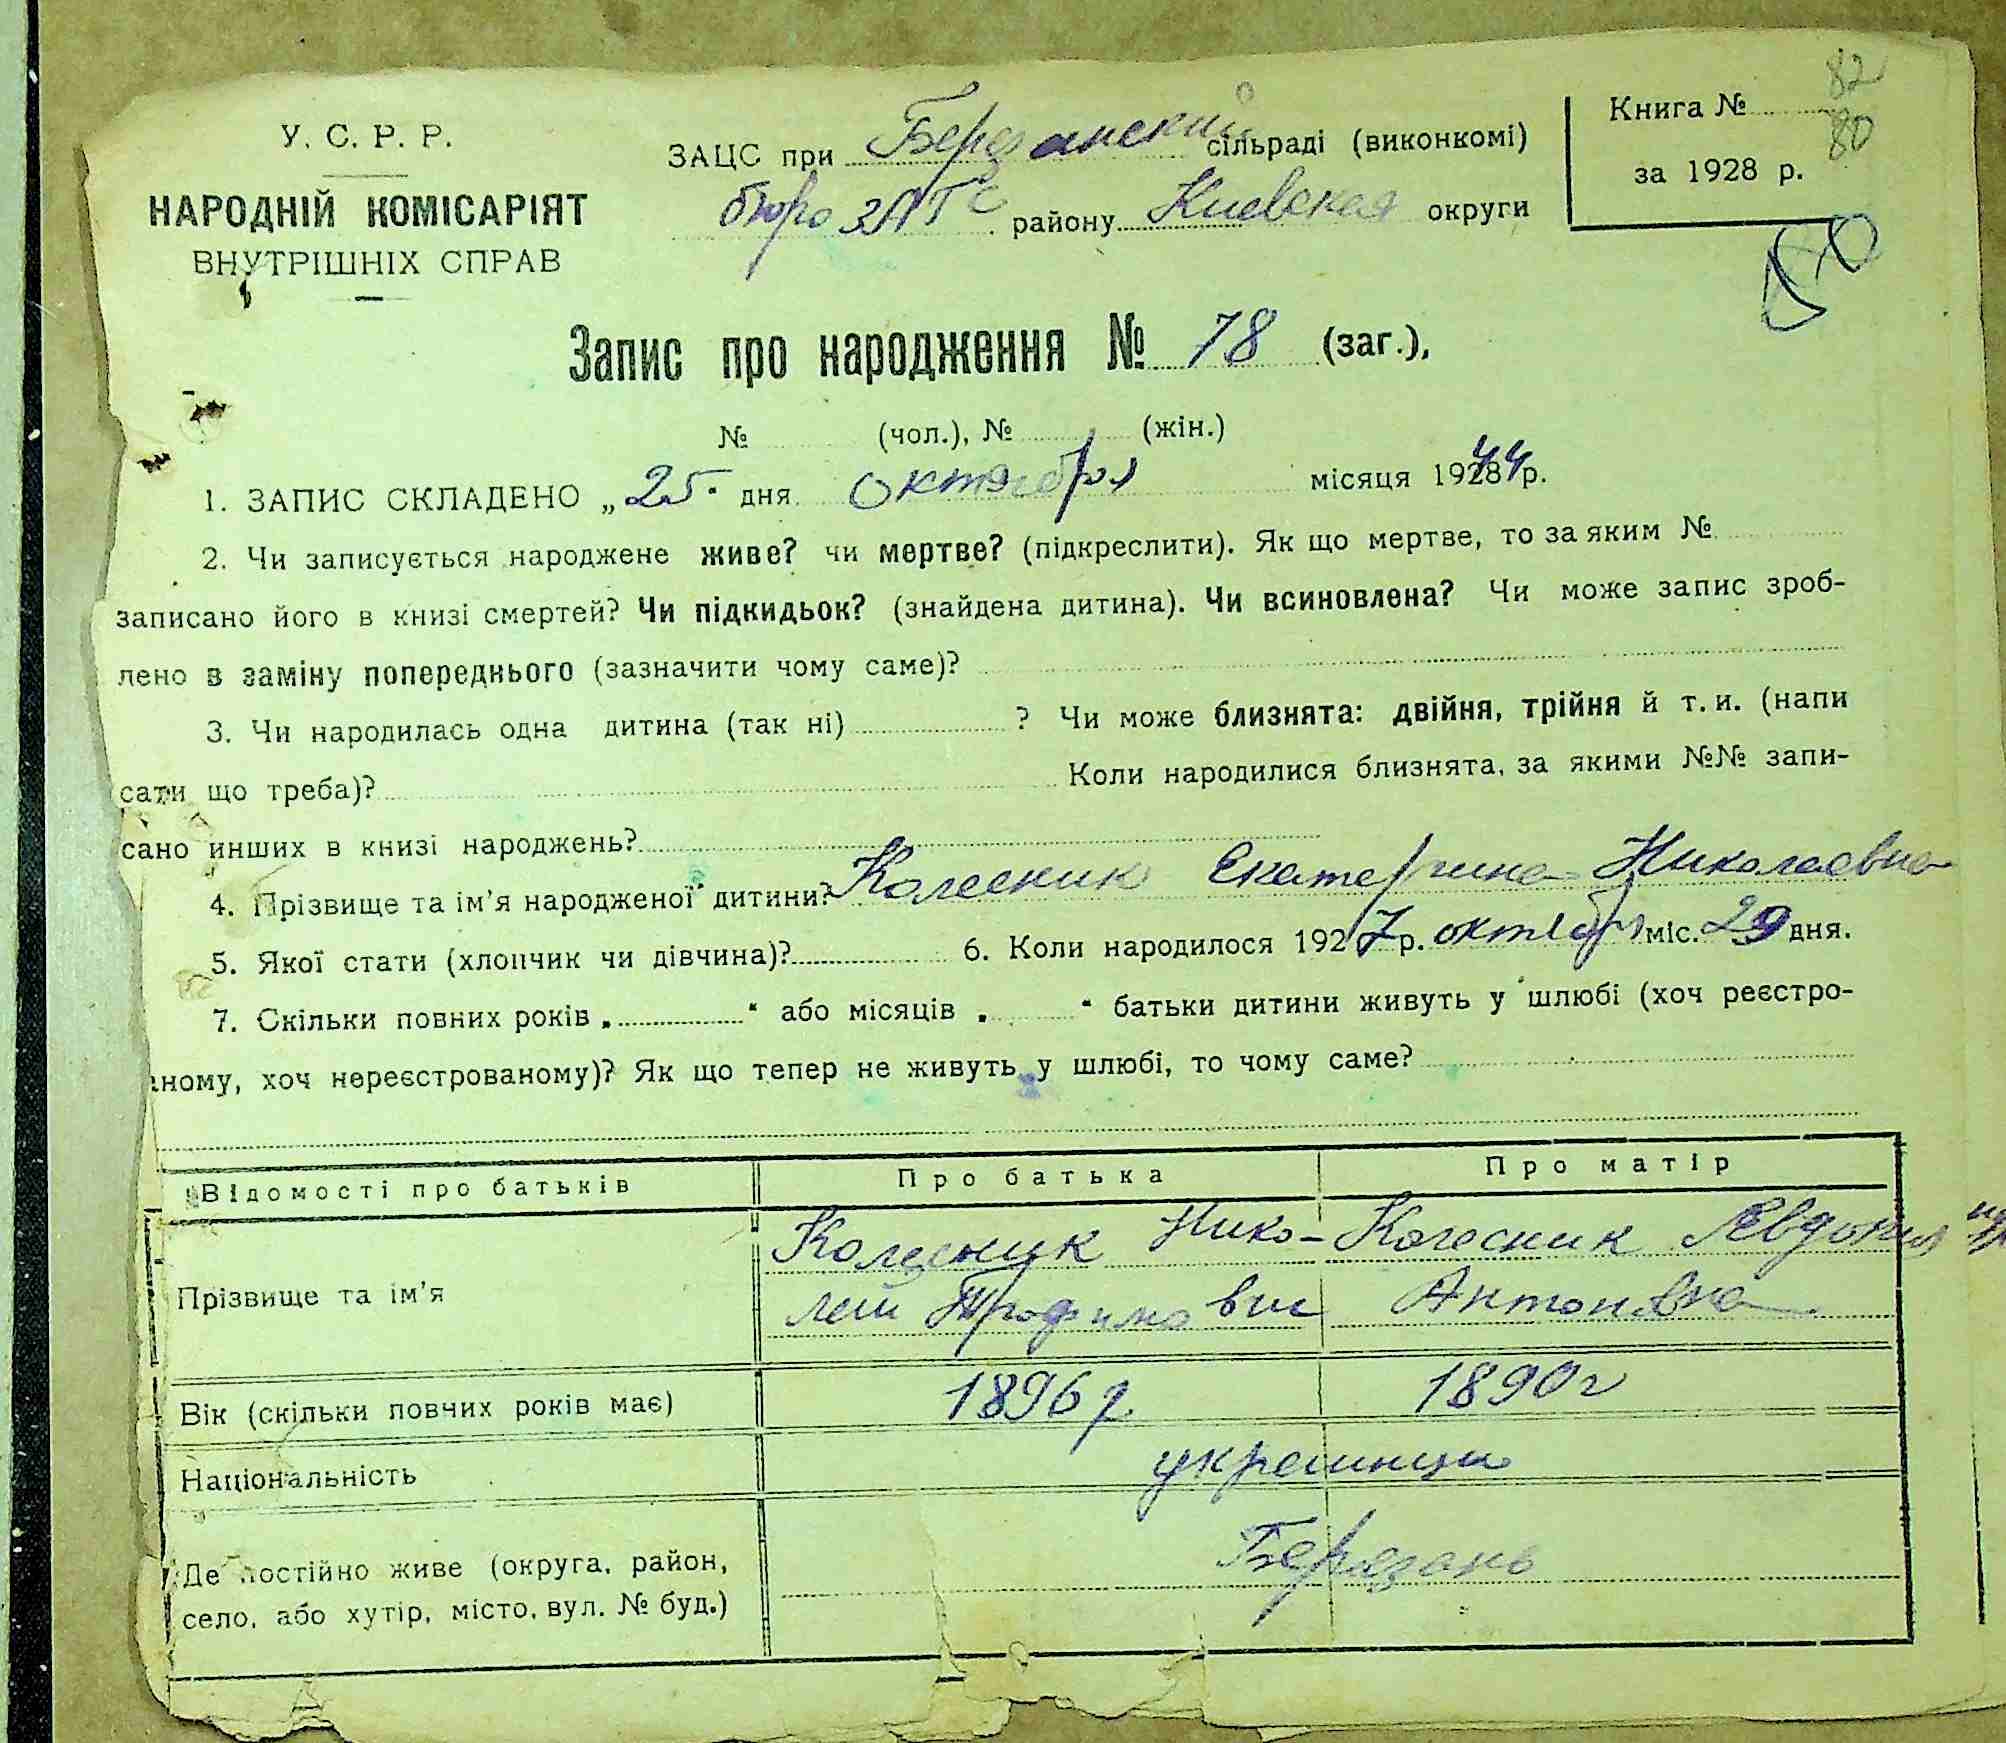 82
80
У. С. Р. Р.
НАРОДНІЙ КОМІСАРІЯТ
ВНУТРІШНІХ СПРАВ
ЗАЦС при Березанский сільраді (виконкомі)
бюро ЗАГС району Киевская округи
Книга №
за 1928 р.
Запис про народження № 78 (заг.),
№ (чол.), № (жін.)
1. ЗАПИС СКЛАДЕНО „25" дня октября місяця 192844 р.
2. Чи записується народжене живе? чи мертве? (підкреслити). Як що мертве, то за яким №
записано його в книзі смертей? Чи підкидьок? (знайдена дитина). Чи всиновлена? Чи може запис зроб-
лено в заміну попереднього (зазначити чому саме)?
3. Чи народилась одна дитина (так ні) ? Чи може близнята: двійня, трійня й т. и. (напи
сати що треба)? Коли народилися близнята, за якими №№ запи-
сано инших в книзі народжень?
4. Прізвище та ім'я народженої дитини? Колесник Екатерина Николаевна
5. Якої стати (хлопчик чи дівчина)? 6. Коли народилося 1927 р. октября міс. 29 дня.
7. Скільки повних років „ " або місяців „ " батьки дитини живуть у шлюбі (хоч реєстро-
ному, хоч нереєстрованому)? Як що тепер не живуть у шлюбі, то чому саме?
Відомості про батьків Про батька Про матір
Прізвище та ім'я
Колесник Нико- Колесник Явдокия
лай Трофимович Антоновна
Вік (скільки повних років має) 1896 г. 1890 г
Національність украинцы
Де постійно живе (округа, район, Березань
село, або хутір, місто, вул. № буд.)